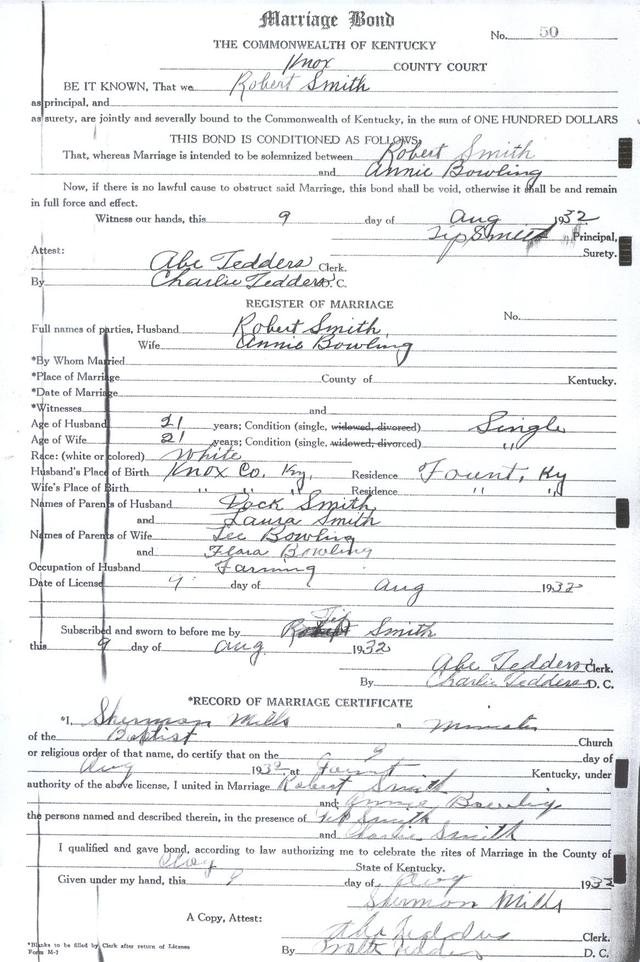 Marriage Bond
No. 50
THE COMMONWEALTH OF KENTUCKY
Knox COUNTY COURT
BE IT KNOWN, That we Robert Smith
as principal, and
as surety, are jointly and severally bound to the Commonwealth of Kentucky, in the sum of ONE HUNDRED DOLLARS
THIS BOND IS CONDITIONED AS FOLLOWS:
That, whereas Marriage is intended to be solemnized between Robert Smith
and Annie Bowling
Now, if there is no lawful cause to obstruct said Marriage, this bond shall be void, otherwise it shall be and remain
in full force and effect.
Witness our hands, this 9 day of Aug 1932
Tip Smith Principal,
Surety.
Attest:
Abe Tedders Clerk.
By Charlie Tedders D. C.
REGISTER OF MARRIAGE
No.
Full names of parties, Husband Robert Smith
Wife Annie Bowling
*By Whom Married
*Place of Marriage County of Kentucky.
*Date of Marriage
*Witnesses and
Age of Husband 21 years; Condition (single, widowed, divorced) Single
Age of Wife 21 years; Condition (single, widowed, divorced) "
Race: (white or colored) White
Husband's Place of Birth Knox Co. Ky. Residence Fount, Ky
Wife's Place of Birth " " " Residence " "
Names of Parents of Husband Dock Smith
and Laura Smith
Names of Parents of Wife Lee Bowling
and Flora Bowling
Occupation of Husband Farming
Date of License 9 day of Aug 1932
Subscribed and sworn to before me by Robert Tip Smith
this 9 day of Aug 1932
Abe Tedders Clerk.
By Charlie Tedders D. C.
*RECORD OF MARRIAGE CERTIFICATE
*I, Sherman Mills a Minister
of the Baptist Church
or religious order of that name, do certify that on the 9 day of
Aug 1932 at Fount Kentucky, under
authority of the above license, I united in Marriage Robert Smith
and Annie Bowling
the persons named and described therein, in the presence of Tip Smith
and Charlie Smith
I qualified and gave bond, according to law authorizing me to celebrate the rites of Marriage in the County of
Clay State of Kentucky.
Given under my hand, this 9 day of Aug 1932
Sherman Mills
A Copy, Attest:
Abe Tedders Clerk.
By Tedders D. C.
*Blanks to be filled by Clerk after return of License
Form M-7